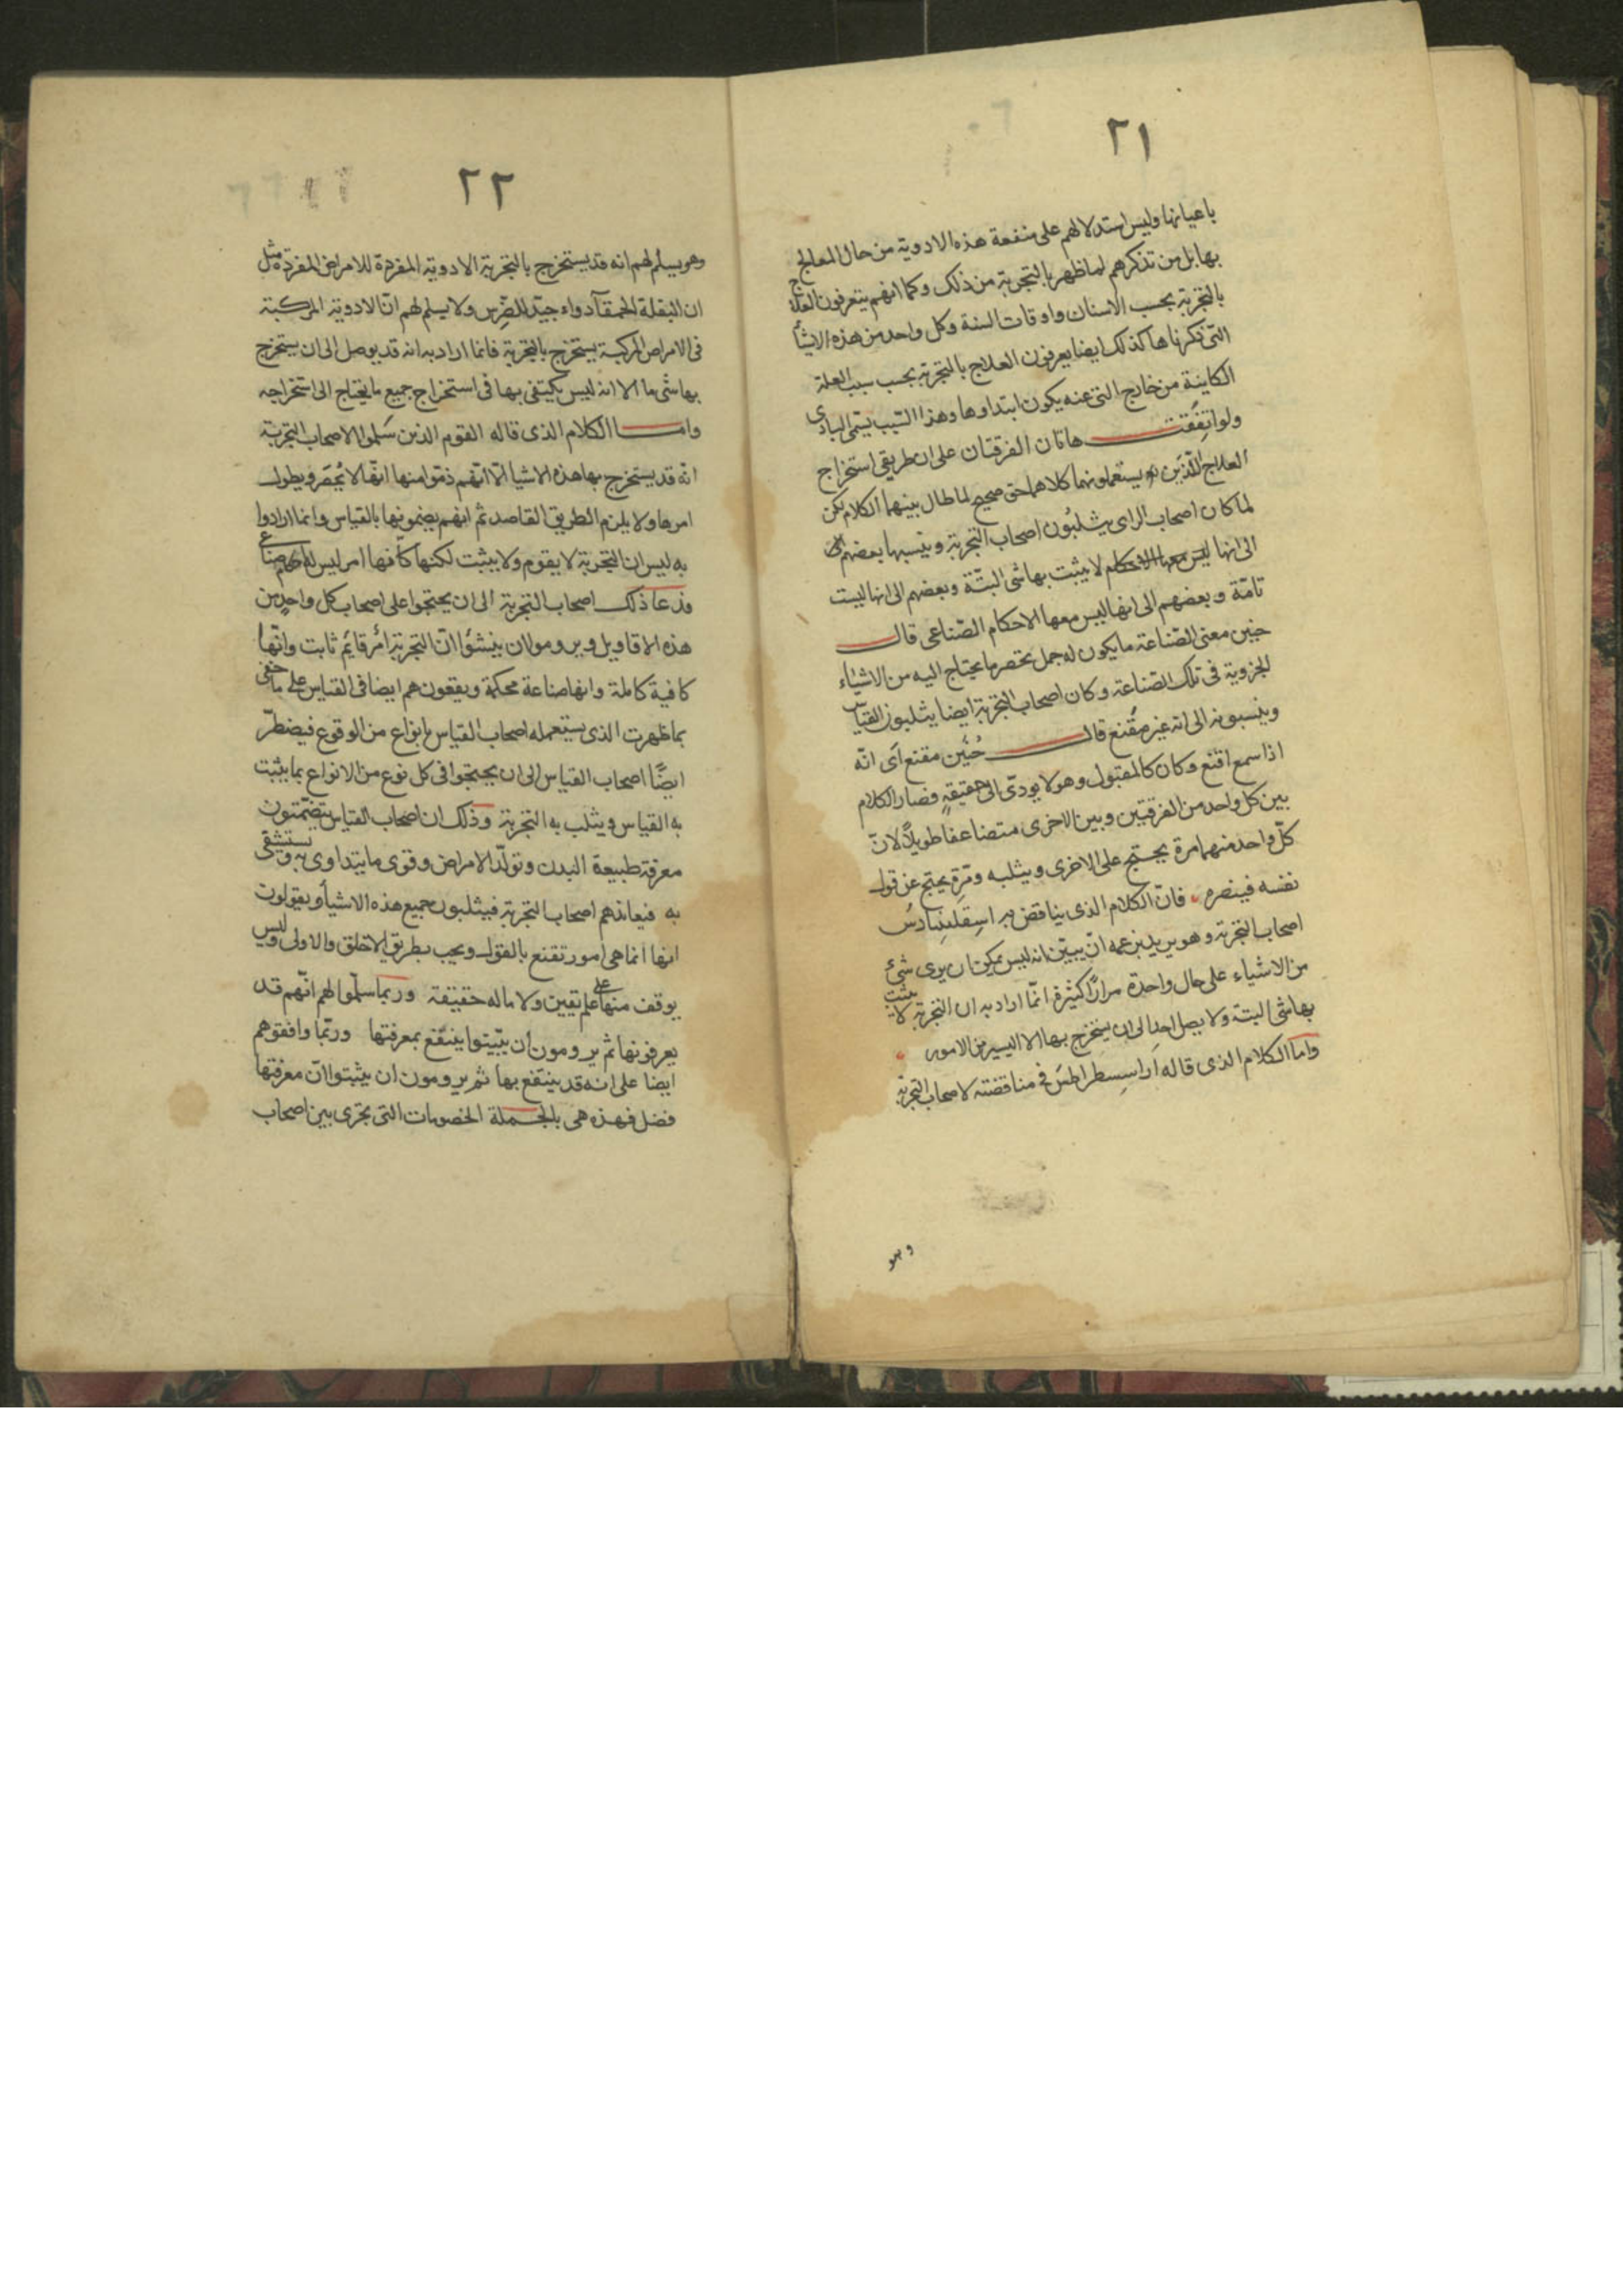 ٢١
باعيانها وليس استدلالهم على منفعة هذه الادوية من حال المعالج
بها بل من تذكرهم لما ظهر بالتجربة من ذلك وكما انهم يتعرفون العلاج
بالتجربة بحسب الاسنان واوقات السنة وكل واحد من هذه الاشيآ
التى ذكرناها كذلك ايضا يعرفون العلاج بالتجربة بحسب سبب العلة
الكاينة من خارج التى عنه يكون ابتداوها وهذا السّبب يسمّى البادى
ولو اتفقت هاتان الفرقتان على ان طريقى استخراج
العلاج اللّذين يستعملونهما كلاهما حق صحيح لما طال بينهما الكلام لكن
لما كان اصحاب الراى يثلبُون اصحاب التجربة وينسبها بعضهم الى
الى انها لا يثبت بها شى البتّة وبعضهم الى انها ليست
تامّة وبعضهم الى انها ليس معها الاحكام الصّناعى قال
حنين معنى الصّناعة ما يكون له جمل تحصر ما يحتاج اليه من الاشياء
الجزوية فى تلك الصّناعة وكان اصحاب التجربة ايضا يثلبون القياس
وينسبونه الى انه غير مقنع قال حُنَين مقنع اى انّه
اذا سمع اقنع وكان كالمقبول وهو لا يودّى الى حقيقةٍ وصار الكلام
بين كل واحد من الفرقتين وبين الاخرى متضاعفا طويلاً لانّ
كلّ واحد منهما مرة يحتج على الاخرى ويثلبه ومَرة يحتج عن قول
نفسه فينصره فانّ الكلام الذى يناقض به اسقلنيادس
اصحاب التجربة وهو يريد بزعمه انّ يبيّن انه ليس يمكن ان يرى شئ
من الاشياء على حال واحدة مرارًا كثيرة انّما اراد به ان التجربة لا يثبت
بها شى البتة ولا يصل احد الى ان يستخرج بها الا اليسير من الامور
واما الكلام الذى قاله اراسسطراطس فى مناقضته لاصحاب التجربة
وهو
٢٢
وهو يسلم لهم انه قد يستخرج بالتجربة الادوية المفردة للامراض المفردة مثل
ان البقلة الحمقآ دواء جيّد للضّرس ولا يسلم لهم انّ الادوية المركبة
فى الامراض المركبة يستخرج بالتجربة فانما اراد به انه قد يوصل الى ان يستخرج
بها شى ما الا انه ليس يكتفى بها فى استخراج جميع ما يحتاج الى استخراجه
وامـا الكلام الذى قاله القوم الذين سَلموا لاصحاب التجربة
انّه قد يستخرج بها هذه الاشيا الّا انّهم ذمّوا منها انّها لا تُحصَر ويطول
امرها ولا يلزم الطريق القاصد ثم انهم يضمونها بالقياس وانما ارادوا
به ليس ان التجربة لا يقوم ولا يثبت لكنها كأنها امر ليس له احكام صناعى
فدعا ذلك اصحاب التجربة الى ان يحتجوا على اصحاب كل واحدٍ من
هذه الاقاويل ويرومولان ينشؤا انّ التجربة امرٌ قايَم ثابت وانّها
كافية كاملة وانها صناعة محكمة ويقعون هم ايضا فى القياس على ما خفى
بما ظهرت الذى يستعمله اصحاب القياس بانواع من الوقوع فيضطرّ
ايضًا اصحاب القياس الى ان يحتجّوا فى كل نوع من الانواع بما يثبت
به القياس ويثلب به التجربة وذلك ان اصحاب القياس يتضمّنون
معرفة طبيعة البدن وتولّد الامراض وقوى ما يتداوى به ويستشفى
به فيعاندهم اصحاب التجربة فيثلبون جميع هذه الاشيآ ويقولون
انها انما هى امور تقنع بالقول ويجب بطريق الاخلق والاولى وليس
يوقف منها على علم يقين ولا ما له حقيقة وربما سلّموا لهم انّهم قد
يعرفونها ثم يرومون أن يبّيتوا ينتفع بمعرفتها وربّما وافقوهم
ايضا على انه قد ينتفع بها ثم يرومون ان يثبتوا انّ معرفتها
فضل فهذه هى بالجـملة الخصومات التى تجرى بين اصحاب